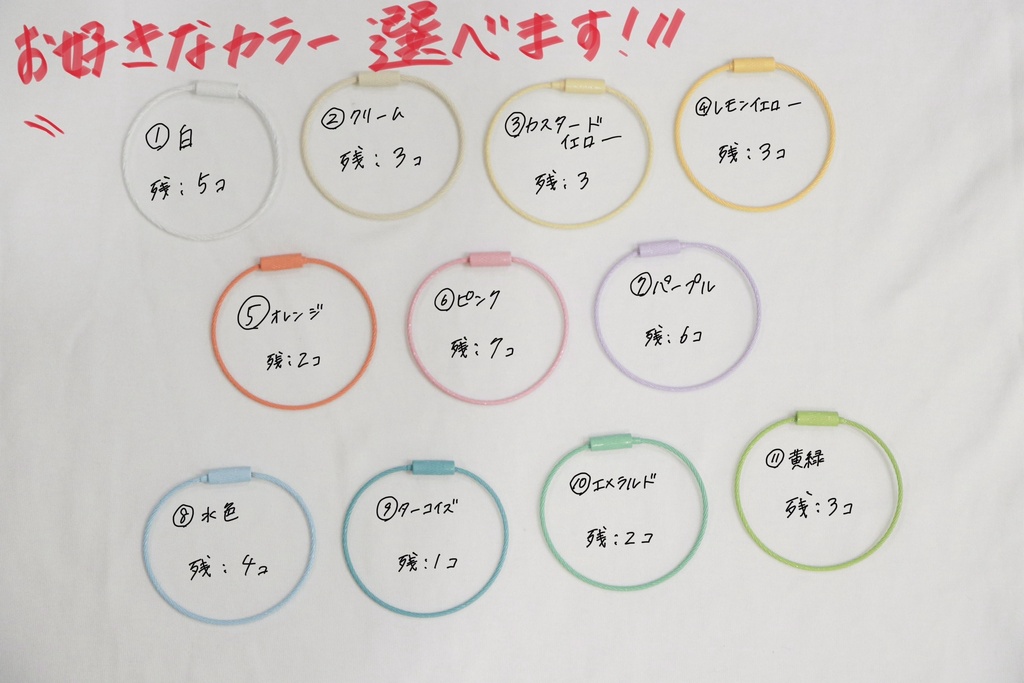 お好きなカラー選べます!!!
①白
残:5コ
②クリーム
残:3コ
③カスタード
イエロー
残:3
④レモンイエロー
残:3コ
⑤オレンジ
残:2コ
⑥ピンク
残:7コ
⑦パープル
残:6コ
⑧水色
残:4コ
⑨ターコイズ
残:1コ
⑩エメラルド
残:2コ
⑪黄緑
残:3コ